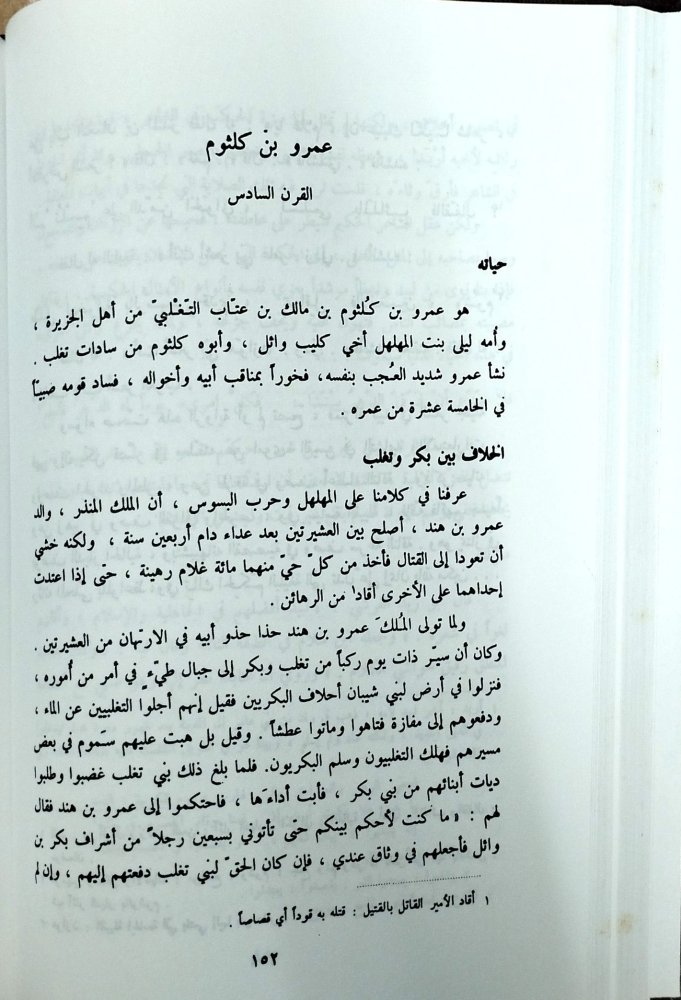 عمرو بن كلثوم
القرن السادس
حياته
هو عمرو بن كُلثوم بن مالك بن عتّاب التّغْلبيّ من أهل الجزيرة ،
وأُمه ليلى بنت المهلهل أخي كليب وائل ، وأبوه كلثوم من سادات تغلب .
نشأ عمرو شديد العُجب بنفسه، فخوراً بمناقب أبيه وأخواله ، فساد قومه صبيّاً
في الخامسة عشرة من عمره .
الخلاف بين بكر وتغلب
عرفنا في كلامنا على المهلهل وحرب البسوس ، أن الملك المنذر ، والد
عمرو بن هند ، أصلح بين العشيرتين بعد عداء دام أربعين سنة ، ولكنه خشي
أن تعودا إلى القتال فأخذ من كلّ حيّ منهما مائة غلام رهينة ، حتى إذا اعتدت
إحداهما على الأخرى أقاد١ من الرهائن .
ولما تولى المُلكَ عمرو بن هند حذا حذو أبيه في الارتهان من العشيرتين .
وكان أن سيّر ذات يوم ركباً من تغلب وبكر إلى جبال طيّء في أمر من أُموره ،
فنزلوا في أرض لبني شيبان أحلاف البكريين فقيل إنهم أجلوا التغلبيين عن الماء ،
ودفعوهم إلى مفازة فتاهوا وماتوا عطشاً . وقيل بل هبت عليهم سَموم في بعض
مسيرهم فهلك التغلبيون وسلم البكريون. فلما بلغ ذلك بني تغلب غضبوا وطلبوا
ديات أبنائهم من بني بكر ، فأبت أداءَها ، فاحتكموا إلى عمرو بن هند فقال
لهم : «ما كنت لأحكم بينكم حتى تأتوني بسبعين رجلاً من أشراف بكر بن
وائل فأجعلهم في وثاق عندي ، فإن كان الحقّ لبني تغلب دفعتهم إليهم ، وإن لم
١ أقاد الأمير القاتل بالقتيل : قتله به قوداً أي قصاصاً .
١٥٢